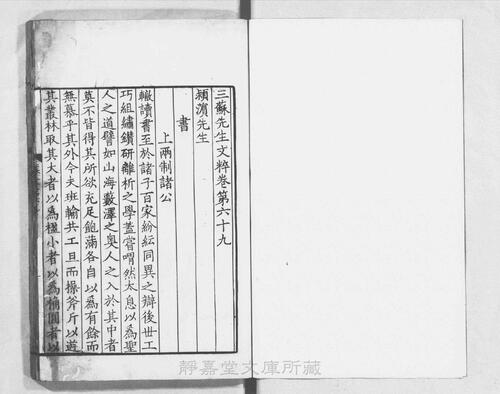 三蘇先生文粹卷第六十九
潁濵先生
書
上兩制諸公
轍讀書至於諸子百家紛紜同異之辯後世工
巧組繡鑽研離析之學蓋嘗喟然太息以爲聖
人之道譬如山海藪澤之奥人之入於其中者
莫不皆得其所欲充足飽滿各自以爲有餘而
無慕乎其外今夫班輸共工旦而操斧斤以遊
其叢林取其大者以爲楹小者以爲桷圓者以
靜嘉堂文庫所藏